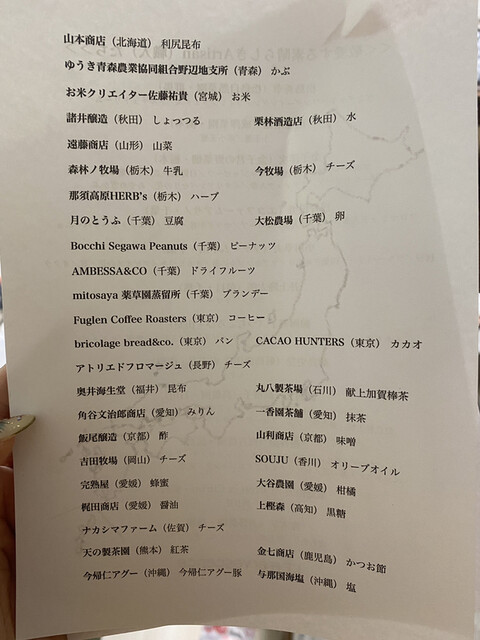 山本商店（北海道）利尻昆布
ゆうき青森農業協同組合野辺地支所（青森）かぶ
お米クリエイター佐藤祐貴（宮城）お米
諸井醸造（秋田）しょっつる　栗林酒造店（秋田）水
遠藤商店（山形）山菜
森林ノ牧場（栃木）牛乳　今牧場（栃木）チーズ
那須高原HERB's（栃木）ハーブ
月のとうふ（千葉）豆腐　大松農場（千葉）卵
Bocchi Segawa Peanuts（千葉）ピーナッツ
AMBESSA&CO（千葉）ドライフルーツ
mitosaya 薬草園蒸留所（千葉）ブランデー
Fuglen Coffee Roasters（東京）コーヒー
bricolage bread&co.（東京）パン　CACAO HUNTERS（東京）カカオ
アトリエドフロマージュ（長野）チーズ
奥井海生堂（福井）昆布　丸八製茶場（石川）献上加賀棒茶
角谷文治郎商店（愛知）みりん　一香園茶舗（愛知）抹茶
飯尾醸造（京都）酢　山利商店（京都）味噌
吉田牧場（岡山）チーズ　SOUJU（香川）オリーブオイル
完熟屋（愛媛）蜂蜜　大谷農園（愛媛）柑橘
梶田商店（愛媛）醤油　上樫森（高知）黒糖
ナカシマファーム（佐賀）チーズ
天の製茶園（熊本）紅茶　金七商店（鹿児島）かつお節
今帰仁アグー（沖縄）今帰仁アグー豚　与那国海塩（沖縄）塩